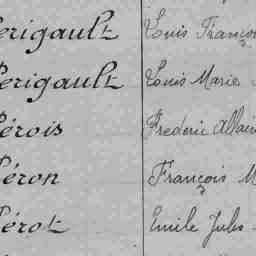 Perigault Louis François
Perigault Louis Marie
Pérois Frederic Allain
Péron François M
Pérot Emile Jules